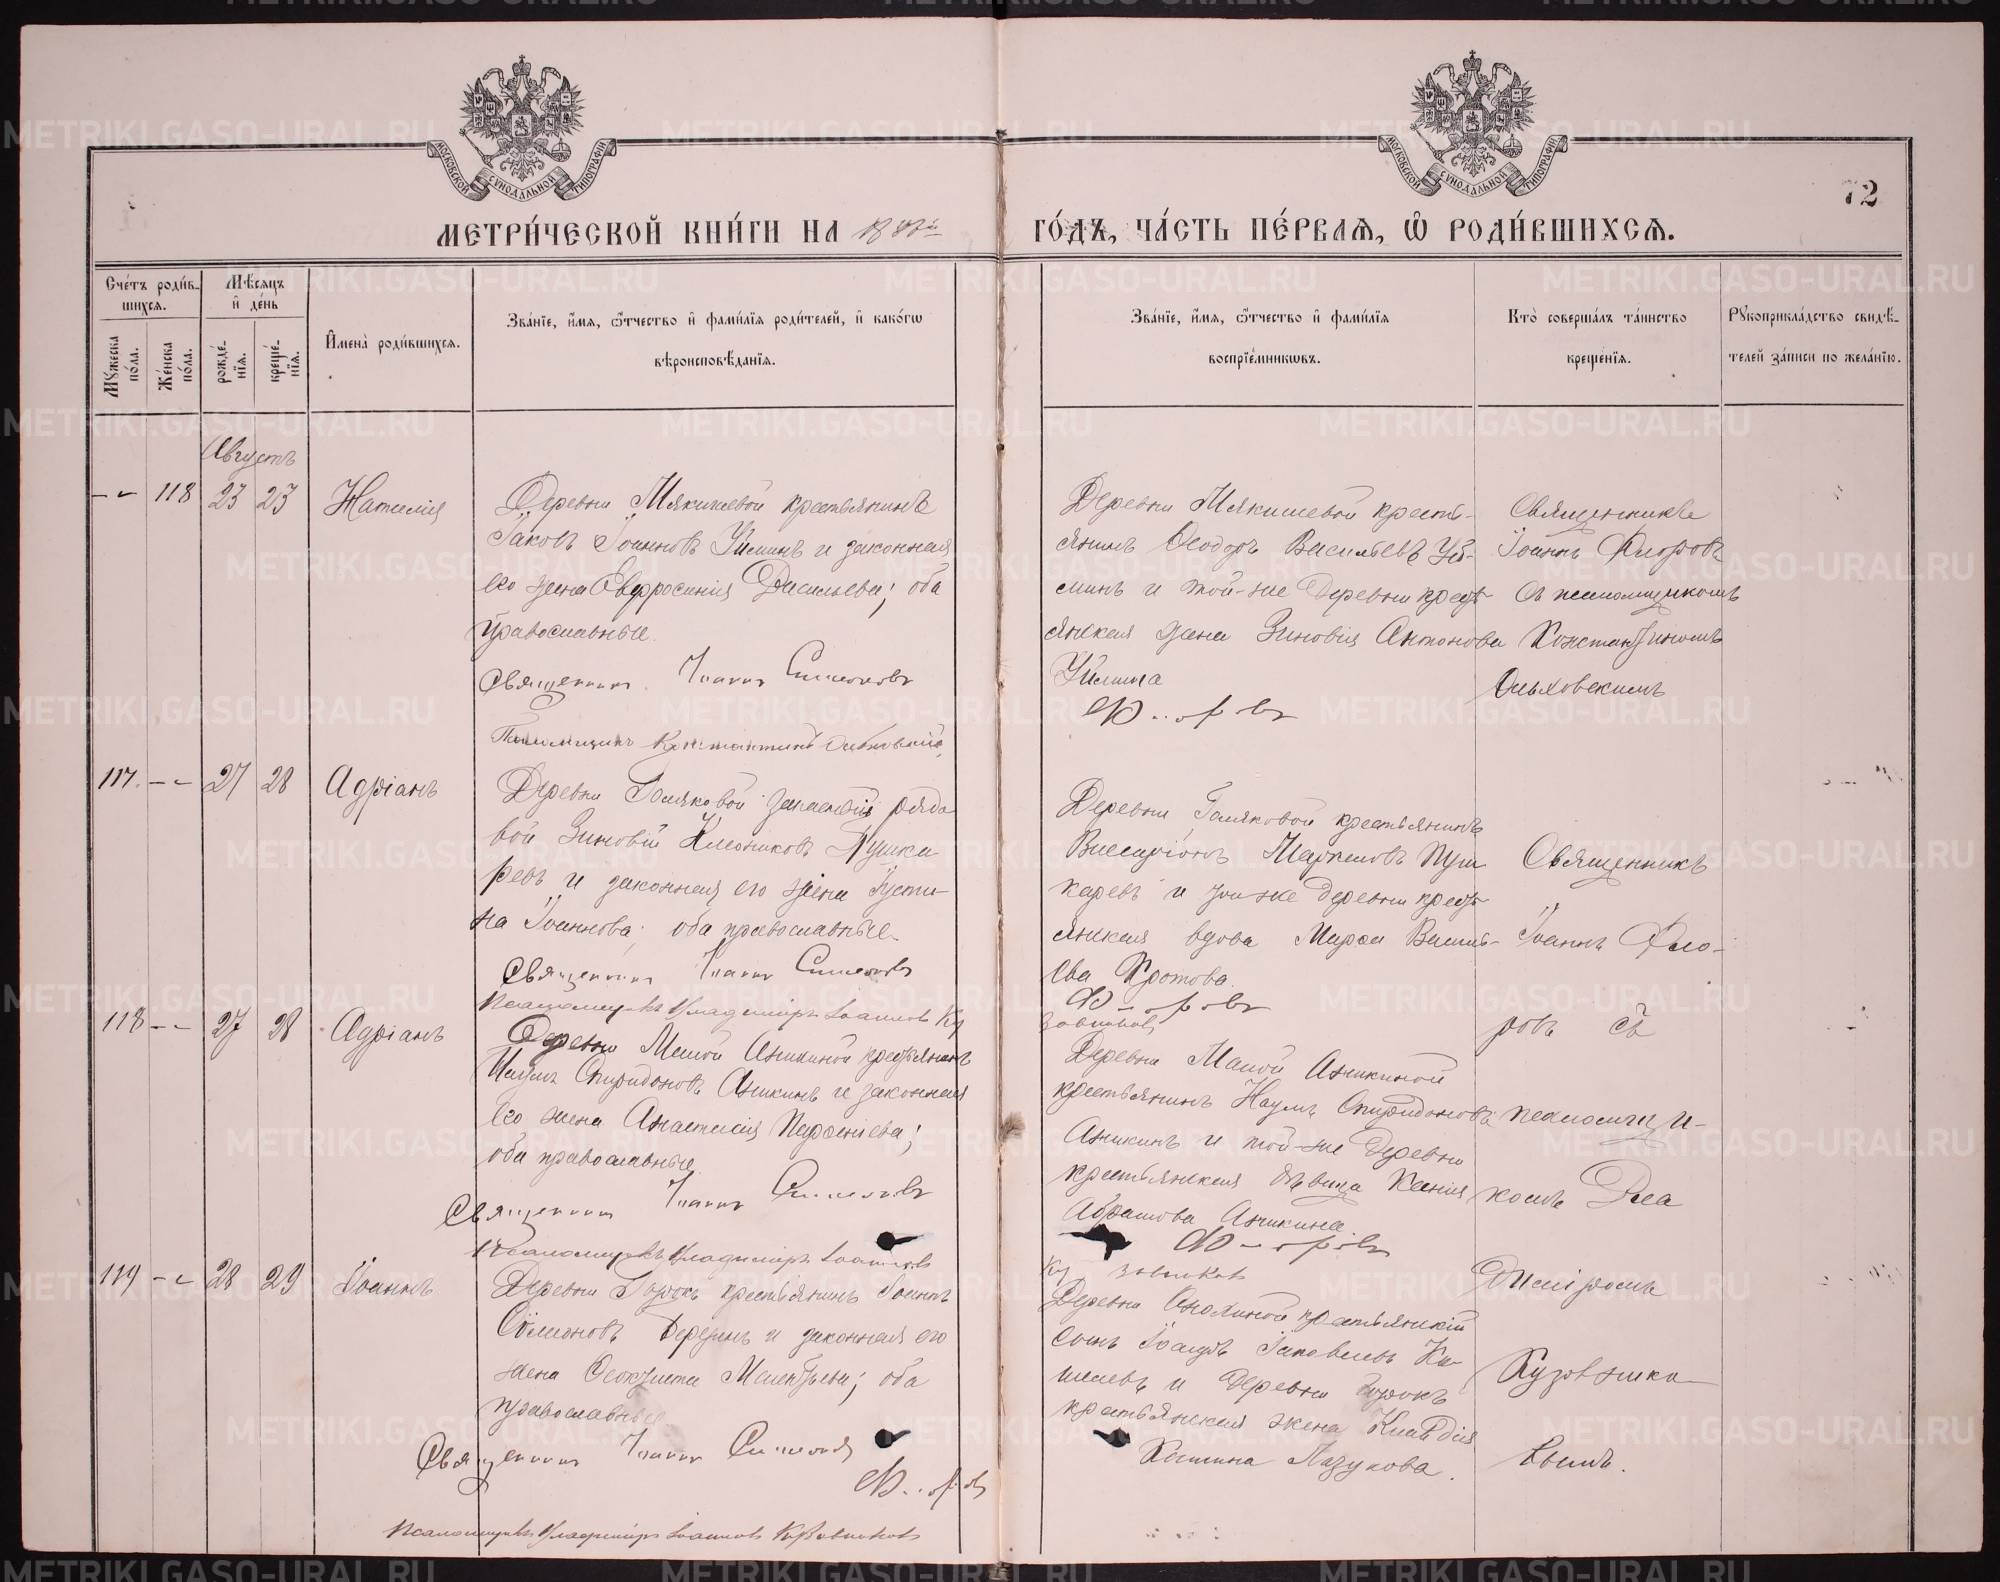 МОСКОВСКОЙ СУНОДАЛЬНОЙ ТИПОГРАФІИ
МОСКОВСКОЙ СУНОДАЛЬНОЙ ТИПОГРАФІИ
72
МЕТРИ́ЧЕСКОЙ КНИ́ГИ НА
ГО́ДЪ, ЧА́СТЬ ПЕ́РВАѦ, Ѡ РОДИ́ВШИХСѦ.
Сче́тъ роди́вшихся.
Мѣ́сяцъ и де́нь
Мꙋ́жеска по́ла.
Же́нска по́ла.
рожде́нїѧ.
креще́нїѧ.
И҆мена̀ роди́вшихсѧ.
Зва́нїе, и҆́мѧ, ѻ҆́тчество и҆ фами́лїѧ роди́телей, и҆ како́гѡ вѣроисповѣ́данїѧ.
Зва́нїе, и҆́мѧ, ѻ҆́тчество и҆ фами́лїѧ воспрїе́мникѡвъ.
Кто̀ соверша́лъ та́инство креще́нїѧ.
Рꙋкоприкла́дство свидѣ́телей за́писи по жела́нїю.
Августъ
118 23 23 Наталія
Деревни Мякишевой крестьянинъ
Іаковъ Іоанновъ Уйминъ и законная
его жена Евфросинія Васильева; оба
православные.
Священникъ Іоаннъ Симоновъ
Псаломщикъ Константинъ Ольховскій
Деревни Мякишевой кресть-
янинъ Ѳеодоръ Васильевъ Уй-
минъ и той-же деревни кресть-
янская жена Зиновія Антонова
Уймина
Священникъ
Іоаннъ Флоровъ
съ псаломщикомъ
Константиномъ
Ольховскимъ
117. 27 28 Адріанъ
Деревни Голяковой запасной рядо
вой Зиновій Пушка
ревъ и законная его жена Іусти-
на Іоаннова; оба православные.
Священникъ Іоаннъ Симоновъ
Псаломщикъ Владиміръ Іоанновъ Ку
зовниковъ
Деревни Голяковой крестьянинъ
Виссаріонъ Пуш
каревъ и той-же деревни кресть
янская вдова Марѳа Василь-
ева Кротова.
Священникъ
Іоаннъ Фло-
ровъ съ
118 27 28 Адріанъ
Деревни Малой Аникиной крестьянинъ
Наумъ Спиридоновъ Аникинъ и законная
его жена Анастасія Парѳеніева;
оба православные.
Священникъ Іоаннъ Симоновъ
Псаломщикъ Владиміръ Іоанновъ
Ку зовниковъ
Деревни Малой Аникиной
крестьянинъ Наумъ Спиридоновъ
Аникинъ и той-же деревни
крестьянская дѣвица Ксенія
Абрамова Аникина
псаломщи-
комъ Вла
119 28 29 Іоаннъ
Деревни крестьянинъ Іоаннъ
Сѵмеоновъ Березинъ и законная его
жена Ѳеоктиста Мелентьева; оба
православные.
Священникъ Іоаннъ Симоновъ
Псаломщикъ Владиміръ Іоанновъ Кузовниковъ
Деревни крестьянскій
сынъ Іаковлевъ Ки-
шевъ и деревни
крестьянская жена Клавдія
Лазукова.
диміромъ
Кузовнико-
вымъ.
METRIKI.GASO-URAL.RU